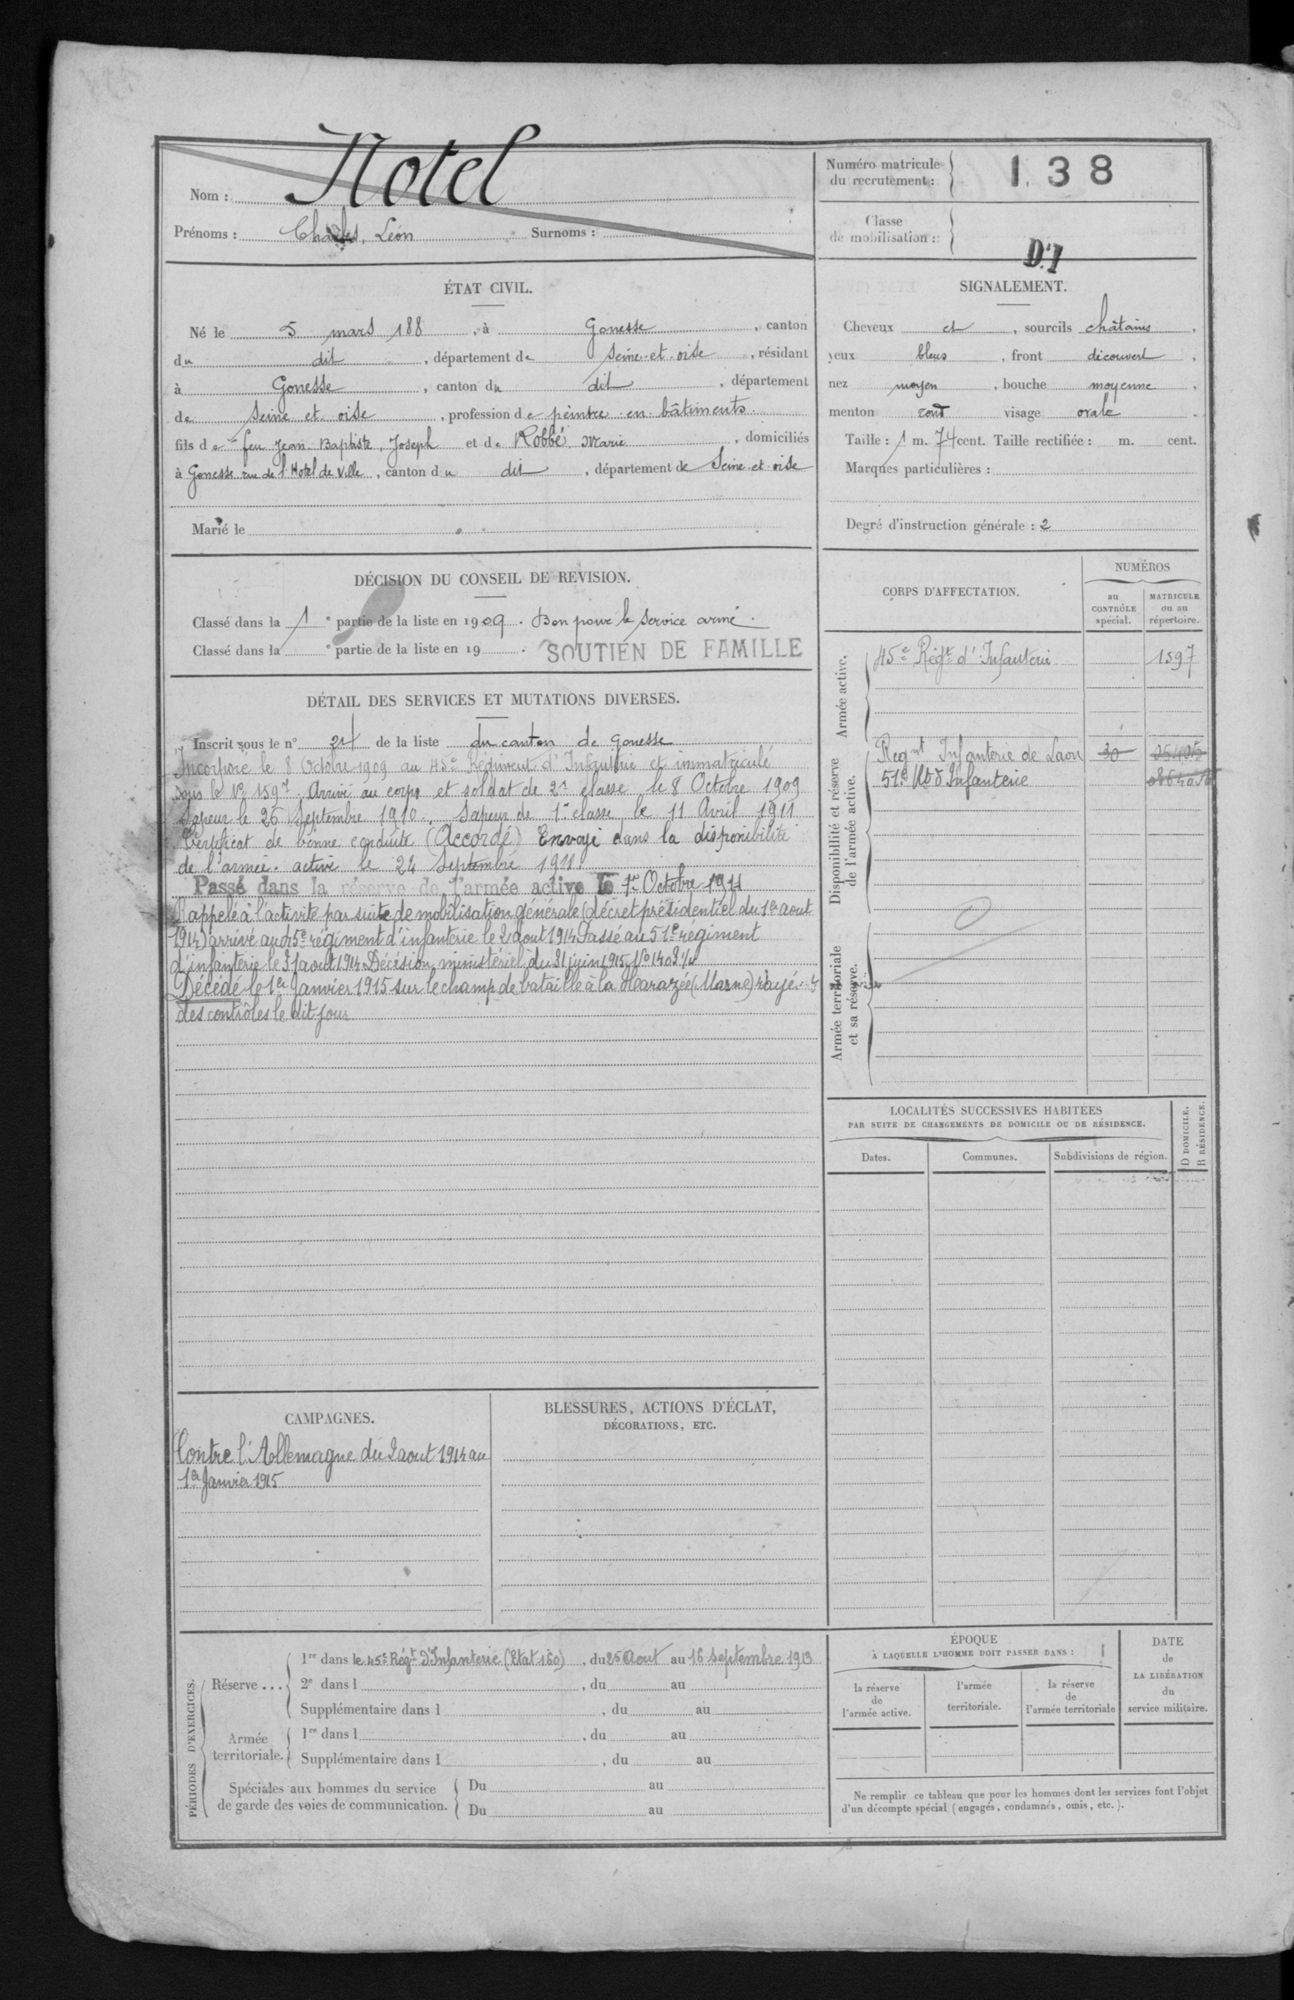 Nom : Notel
Prénoms : Charles, Léon Surnoms :
Numéro matricule du recrutement : 138
Classe de mobilisation :
D.I
ÉTAT CIVIL.
Né le 5 mars 188 , à Gonesse , canton
du dit , département de Seine-et-oise , résidant
à Gonesse , canton du dit , département
de Seine et oise , profession de peintre en bâtiments
fils de feu Jean Baptiste, Joseph et de Robbé Marie , domiciliés
à Gonesse rue de l'Hotel de Ville , canton du dit , département de Seine et oise
Marié le
SIGNALEMENT.
Cheveux et , sourcils châtains ,
yeux bleus , front découvert ,
nez moyen , bouche moyenne ,
menton rond visage ovale .
Taille : 1 m. 74 cent. Taille rectifiée : m. cent.
Marques particulières :
Degré d'instruction générale : 2
DÉCISION DU CONSEIL DE REVISION.
Classé dans la 1e partie de la liste en 1909 . Bon pour le service armé .
Classé dans la e partie de la liste en 19 . SOUTIEN DE FAMILLE
DÉTAIL DES SERVICES ET MUTATIONS DIVERSES.
Inscrit sous le n° 24 de la liste du canton de Gonesse
Incorporé le 8 Octobre 1909 au 45e Régiment d'Infanterie et immatriculé
sous le N° 1597. Arrivé au corps et soldat de 2e classe le 8 Octobre 1909
Sapeur le 26 Septembre 1910. Sapeur de 1e classe le 11 Avril 1911
Certificat de bonne conduite (Accordé) Envoyé dans la disponibilité
de l'armée active le 24 Septembre 1911
Passé dans la réserve de l'armée active le 1er Octobre 1911
Rappelé à l'activité par suite de mobilisation générale (décret présidentiel du 1er aout
1914) arrivé au 45e régiment d'infanterie le 2 aout 1914 Passé au 51e régiment
d'infanterie le 31 aout 1914 Décision ministériel du 21 juin 1915 N°
Décédé le 1er Janvier 1915 sur le champ de bataille à la Harazée (Marne) rayé
des contrôles le dit jour
CORPS D'AFFECTATION.
NUMÉROS
au CONTRÔLE spécial.
MATRICULE ou au répertoire.
Armée active.
45e Régt d'Infanterie 1597
Disponibilité et réserve de l'armée active.
Regmt Infanterie de Laon 30
51e Rt d'Infanterie
Armée territoriale et sa réserve.
LOCALITÉS SUCCESSIVES HABITÉES
PAR SUITE DE CHANGEMENTS DE DOMICILE OU DE RÉSIDENCE.
D DOMICILE.
R RÉSIDENCE.
Dates. Communes. Subdivisions de région.
CAMPAGNES.
Contre l'Allemagne du 2 aout 1914 au
1er Janvier 1915
BLESSURES, ACTIONS D'ÉCLAT,
DÉCORATIONS, ETC.
PÉRIODES D'EXERCICES.
Réserve ...
1re dans le 45e Régt d'Infanterie (Etat 160) , du 25 Aout au 16 Septembre 1913
2e dans l , du au
Supplémentaire dans l , du au
Armée territoriale.
1re dans l , du au
Supplémentaire dans l , du au
Spéciales aux hommes du service
de garde des voies de communication.
Du au
Du au
ÉPOQUE
À LAQUELLE L'HOMME DOIT PASSER DANS :
la réserve de l'armée active.
l'armée territoriale.
la réserve de l'armée territoriale
DATE de LA LIBÉRATION du service militaire.
Ne remplir ce tableau que pour les hommes dont les services font l'objet
d'un décompte spécial (engagés, condamnés, omis, etc.).